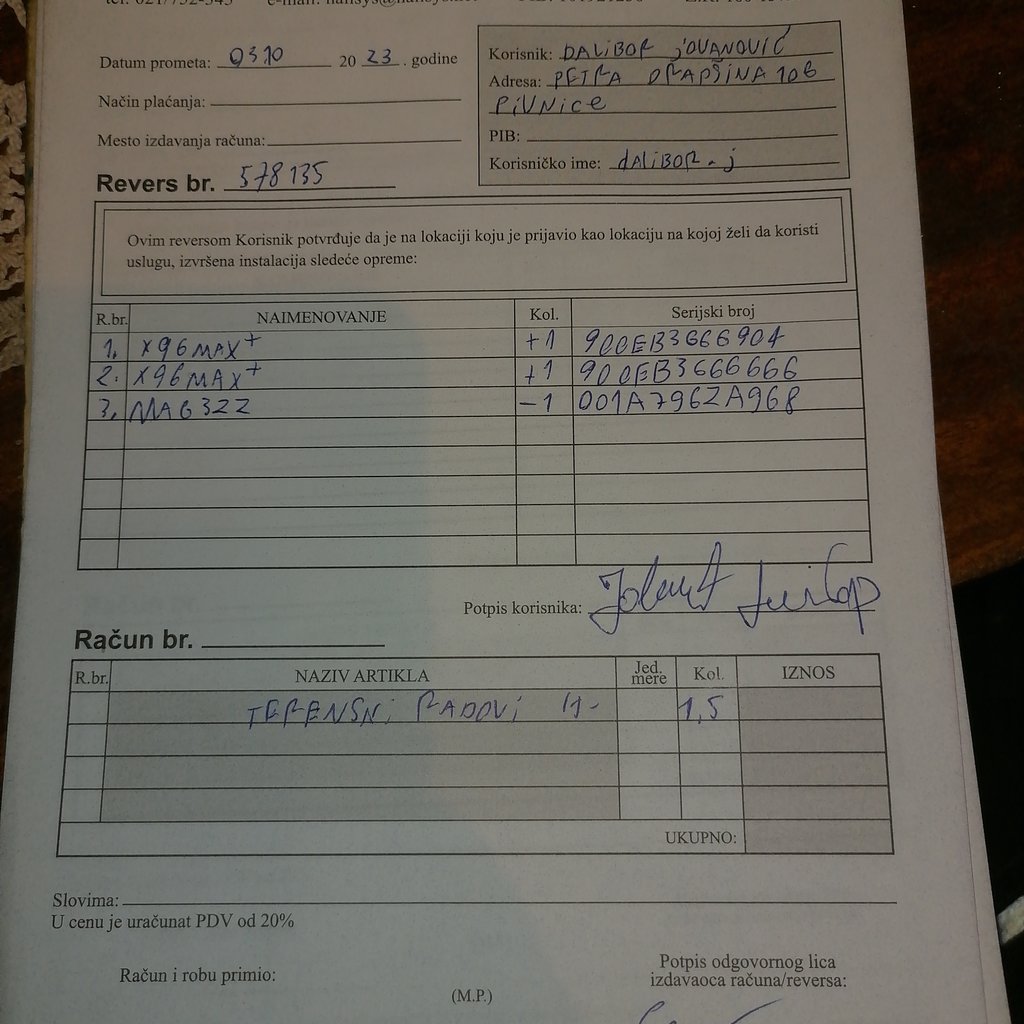 Datum prometa: 03.10 20 23. godine
Način plaćanja:
Mesto izdavanja računa:
Revers br. 578135
Korisnik: DALIBOR JOVANOVIĆ
Adresa: PETRA DRAPŠINA 106
PIVNICE
PIB:
Korisničko ime: dALIBOR.j
Ovim reversom Korisnik potvrđuje da je na lokaciji koju je prijavio kao lokaciju na kojoj želi da koristi
uslugu, izvršena instalacija sledeće opreme:
R.br. NAIMENOVANJE Kol. Serijski broj
1. X96MAX+ +1 900EB3666904
2. X96MAX+ +1 900EB3666666
3. MAG322 -1 001A7962A968
Potpis korisnika:
Račun br.
R.br. NAZIV ARTIKLA Jed. mere Kol. IZNOS
TERENSKI RADOVI 1,5
UKUPNO:
Slovima:
U cenu je uračunat PDV od 20%
Račun i robu primio:
(M.P.)
Potpis odgovornog lica
izdavaoca računa/reversa: